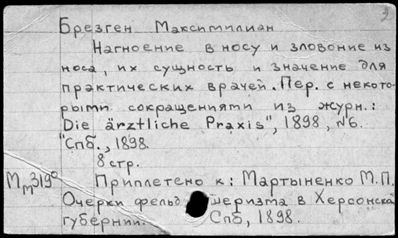 Брезген Максимилиан
Нагноение в носу и зловоние из
носа, их сущность и значение для
практических врачей. Пер. с некото-
рыми сокращениями из журн.:
"Die ärztliche Praxis", 1898, №6.
Спб., 1898.
8 стр.
Приплетено к: Мартыненко М.П.
Очерки фельдшеризма в Херсонск.
губернии. Спб, 1898.